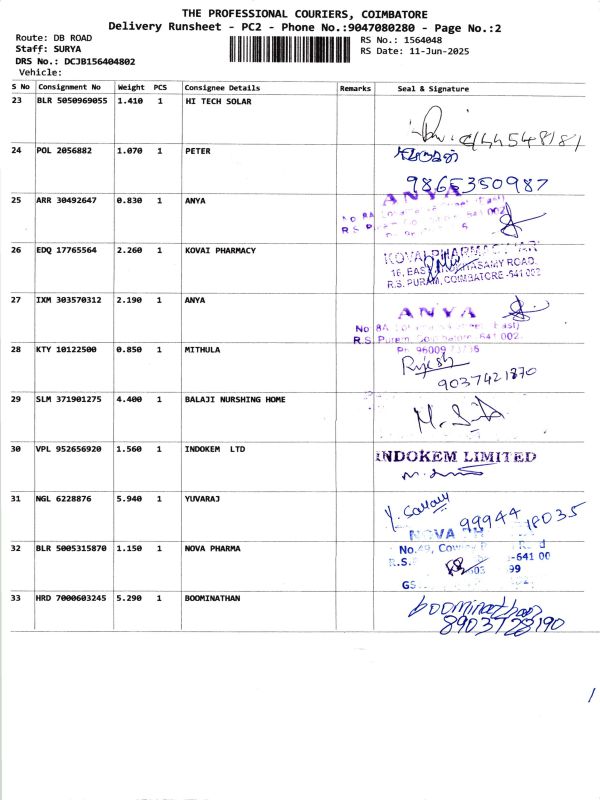 THE PROFESSIONAL COURIERS, COIMBATORE
Delivery Runsheet - PC2 - Phone No.:9047080280 - Page No.:2
Route: DB ROAD
RS No.: 1564048
Staff: SURYA
RS Date: 11-Jun-2025
DRS No.: DCJB156404802
Vehicle:
S No Consignment No Weight PCS Consignee Details Remarks Seal & Signature
23 BLR 5050969055 1.410 1 HI TECH SOLAR
24 POL 2056882 1.070 1 PETER
9865350987
25 ARR 30492647 0.830 1 ANYA
ANYA
26 EDQ 17765564 2.260 1 KOVAI PHARMACY
16, EAST
R.S. PURAM, COIMBATORE -641 002
27 IXM 303570312 2.190 1 ANYA
ANYA
No 8A
R.S. Puram, Coimbatore 641 002
28 KTY 10122500 0.850 1 MITHULA
Rijesh
9037421870
29 SLM 371901275 4.400 1 BALAJI NURSHING HOME
30 VPL 952656920 1.560 1 INDOKEM LTD
INDOKEM LIMITED
31 NGL 6228876 5.940 1 YUVARAJ
99944 18035
32 BLR 5005315870 1.150 1 NOVA PHARMA
NOVA
No.49,
R.S.
-641 00
33 HRD 7000603245 5.290 1 BOOMINATHAN
boominathan
8903728190